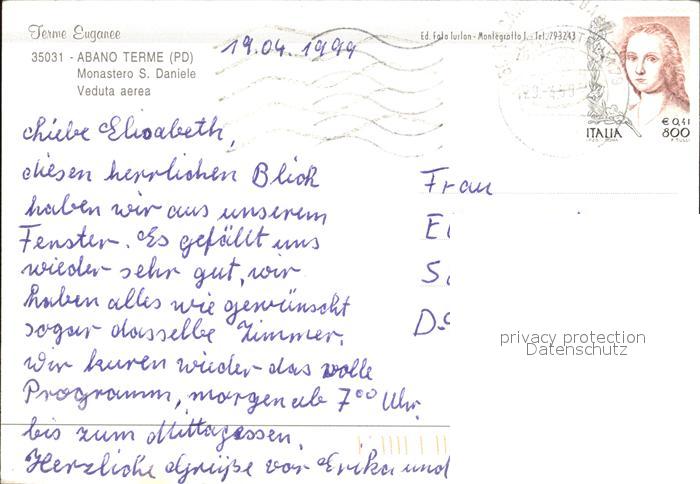 Terme Euganee
35031 - ABANO TERME (PD)
Monastero S. Daniele
Veduta aerea
19.04.1999
Ed. Foto Turlon - Montegrotto T. - Tel. 793243
€ 0,41
ITALIA 800
Liebe Elisabeth,
diesen herrlichen Blick
haben wir aus unserem
Fenster. Es gefällt uns
wieder sehr gut, wir
haben alles wie gewünscht
sogar dasselbe Zimmer.
Wir kuren wieder das volle
Programm, morgen ab 7⁰⁰ Uhr
bis zum Mittagessen.
Herzliche Grüße von Erika und
Frau
privacy protection
Datenschutz